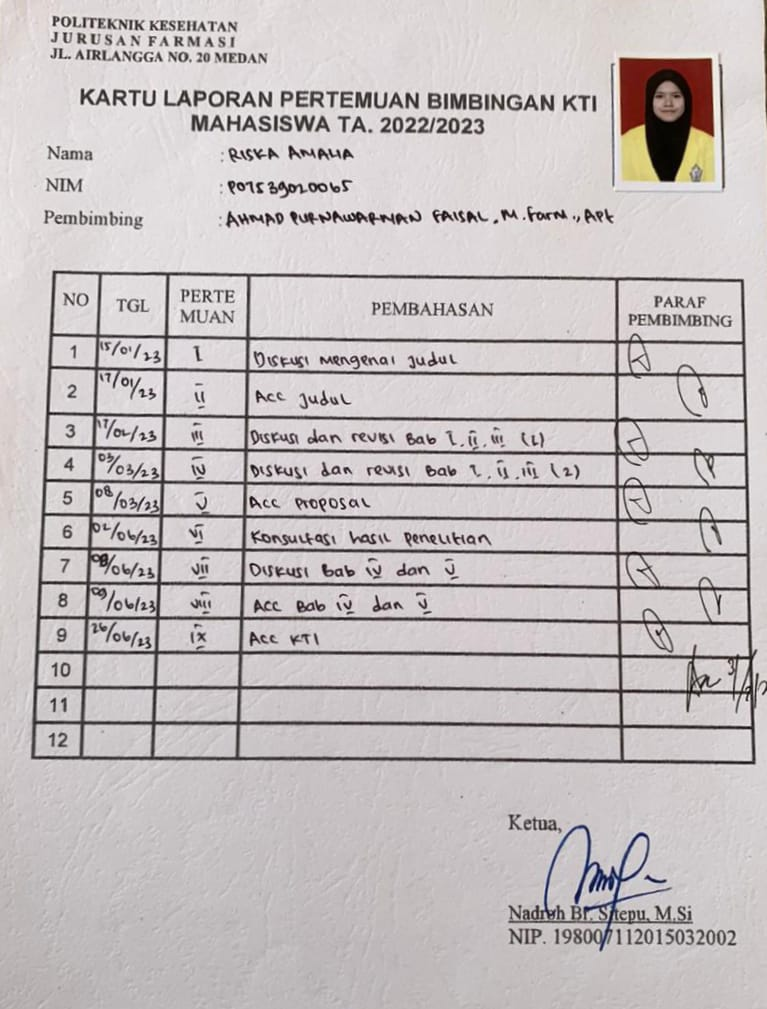 POLITEKNIK KESEHATAN
JURUSAN FARMASI
JL. AIRLANGGA NO. 20 MEDAN
KARTU LAPORAN PERTEMUAN BIMBINGAN KTI
MAHASISWA TA. 2022/2023
Nama : RISKA AMALIA
NIM : P07539020065
Pembimbing : AHMAD PURNAWARMAN FAISAL, M.Farm., Apt
NO TGL PERTEMUAN PEMBAHASAN PARAF PEMBIMBING
1 15/01/23 I Diskusi mengenai judul
2 17/01/23 II Acc judul
3 17/02/23 III Diskusi dan revisi Bab I, II, III (1)
4 03/03/23 IV Diskusi dan revisi Bab I, II, III (2)
5 08/03/23 V Acc proposal
6 02/06/23 VI Konsultasi hasil penelitian
7 08/06/23 VII Diskusi Bab IV dan V
8 09/06/23 VIII Acc Bab IV dan V
9 26/06/23 IX Acc KTI
10
11
12
Ketua,
Nadroh Br. Sitepu, M.Si
NIP. 198007112015032002